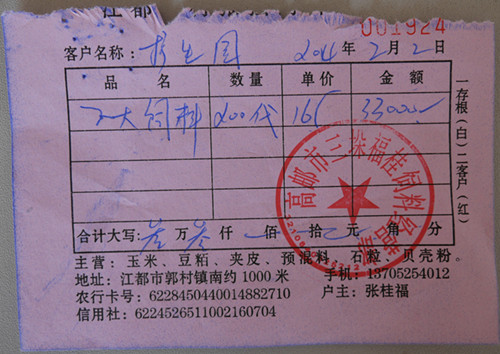 江都
001924
客户名称: 2014年2月2日
品名 数量 单价 金额
饲料 200代 165 33000.-
合计大写: 叁万叁仟 佰 拾 元 角 分
一存根(白)二客户(红)
高邮市三垛福桂饲料经营部
主营:玉米、豆粕、夹皮、预混料、石粒、贝壳粉。
地址:江都市郭村镇南约1000米 手机:13705254012
农行卡号:6228450440014882710 户主:张桂福
信用社:6224526511002160704